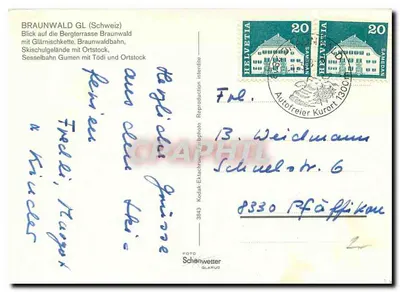 BRAUNWALD GL (Schweiz)
Blick auf die Bergterrasse Braunwald
mit Glärnischkette, Braunwaldbahn,
Skischulgelände mit Ortstock,
Sesselbahn Gumen mit Tödi und Ortstock
Herzliche Grüsse
aus den Ski-
ferien
Fredli, Margot
& Kinder
3843 Kodak Ektachrome Reproduction interdite
FOTO
Schönwetter
GLARUS
HELVETIA 20
SAMEDAN
HELVETIA 20
SAMEDAN
Autofreier Kurort 1300 m
Frl.
B. Weidmann
Schulstr. 6
8330 Pfäffikon